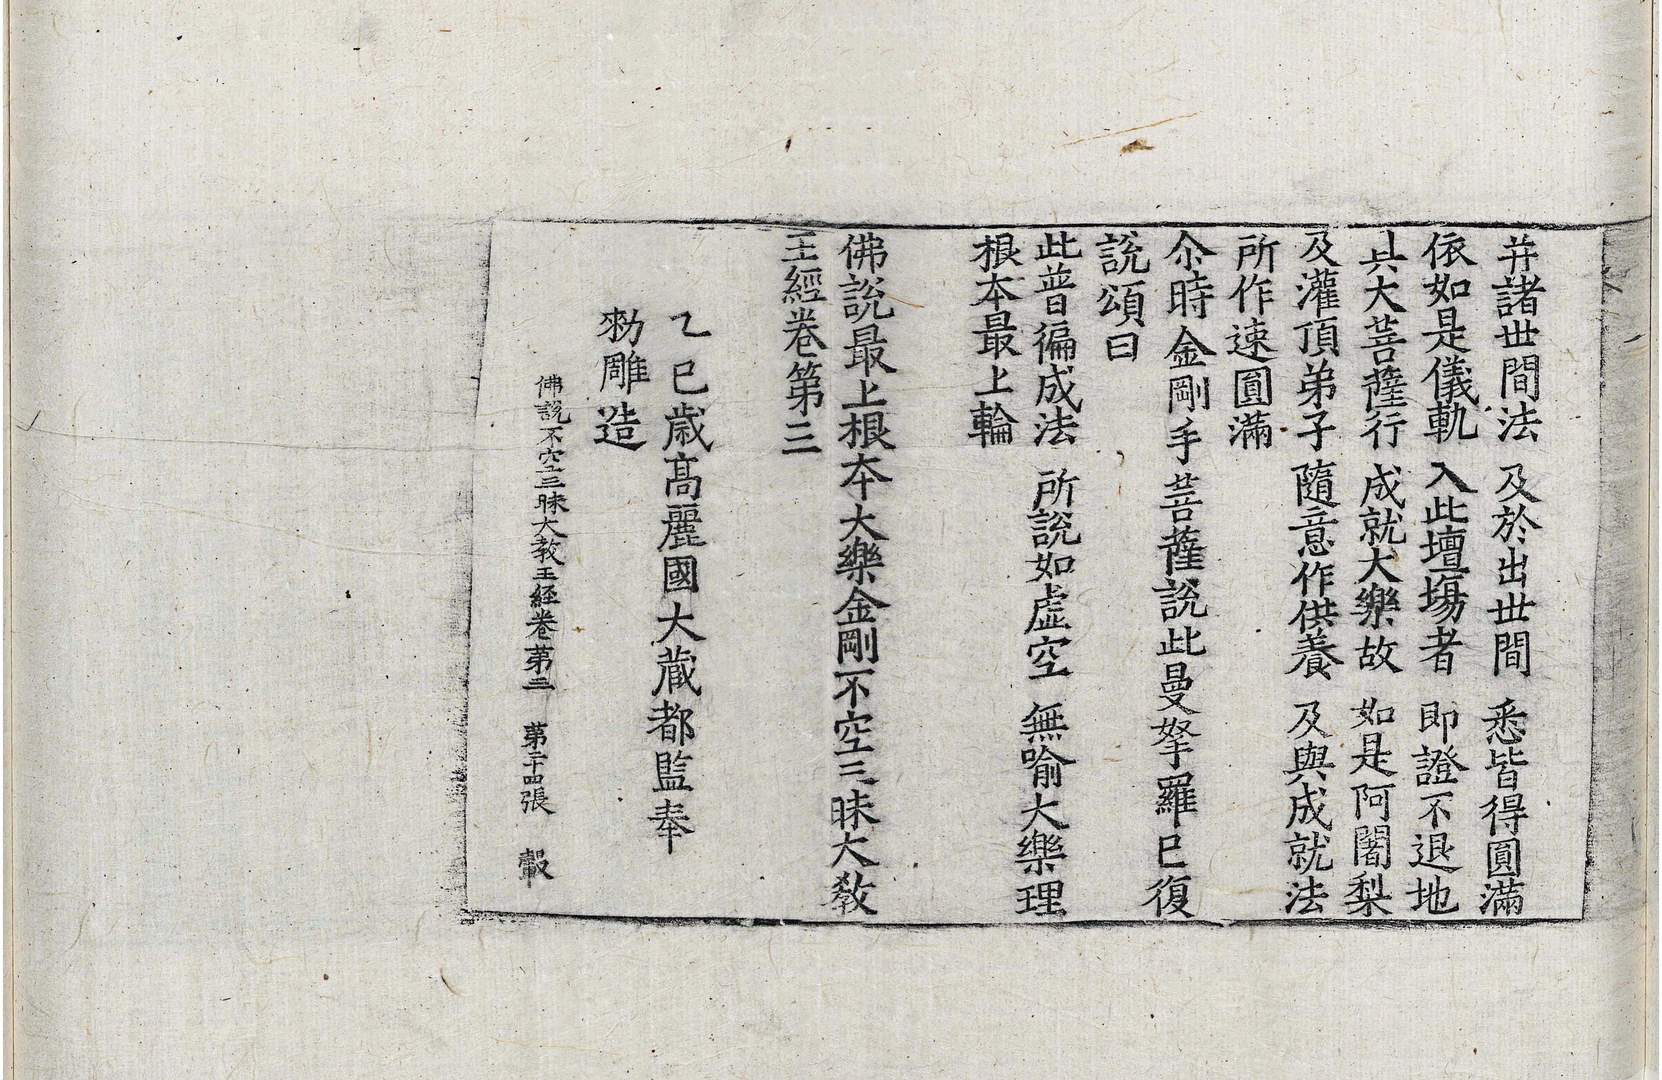 并諸世間法 及於出世間 悉皆得圓滿
依如是儀軌 入此壇場者 即證不退地
共大菩薩行 成就大樂故 如是阿闍梨
及灌頂弟子 隨意作供養 及與成就法
所作速圓滿
尒時金剛手菩薩說此曼拏羅已復
說頌曰
此普徧成法 所說如虛空 無喻大樂理
根本最上輪
佛說最上根本大樂金剛不空三昧大教
王經卷第三
乙巳歲高麗國大藏都監奉
勑雕造
佛說不空三昧大教王經卷第三 第二十四張 轂